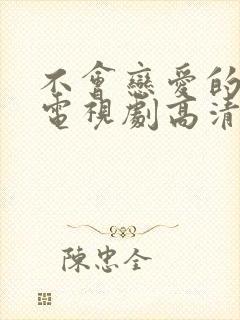 不會戀愛的
電視劇高清
陳忠全